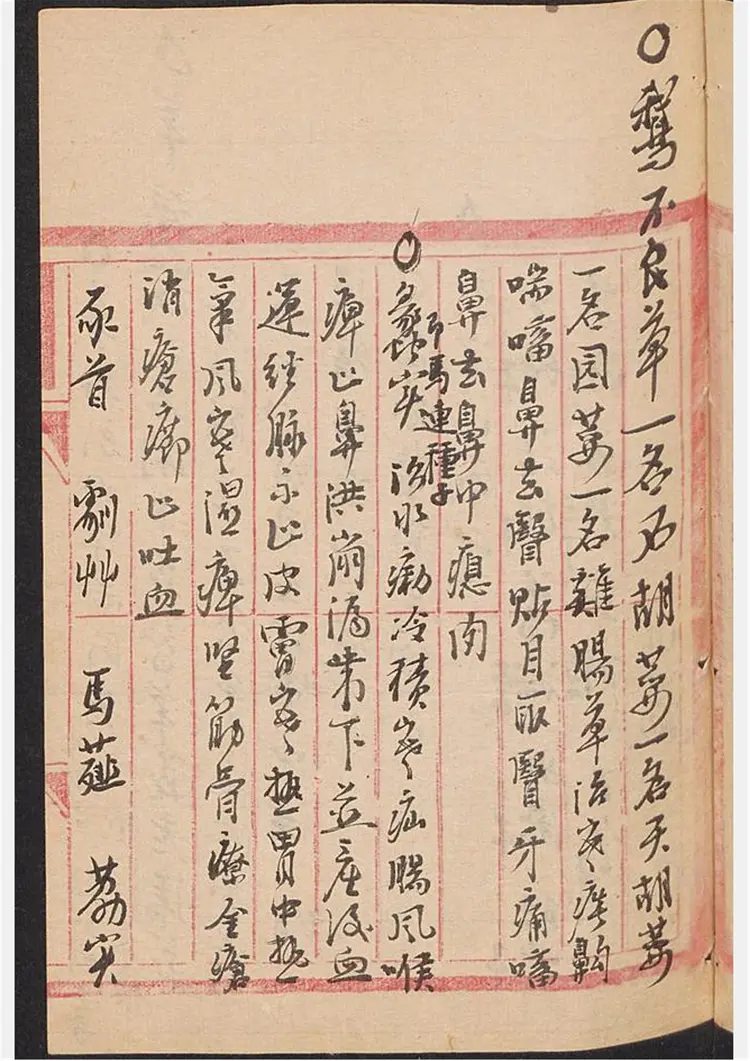 ○鵝不食草一名石胡荽一名天胡荽
一名园荽一名雞腸草治寒痰齁
喘噙鼻去瞖貼目取瞖牙痛噙
鼻去鼻中瘜肉
○蠡实 即馬連種子 治水痢冷積寒疝腸風喉
痺止鼻洪崩漏帶下並产後血
運經脉不止皮膚寒熱胃中熱
氣風寒湿痺坚筋骨療金瘡
消瘡癤止吐血
豕首 劇艸 馬薤 荔实